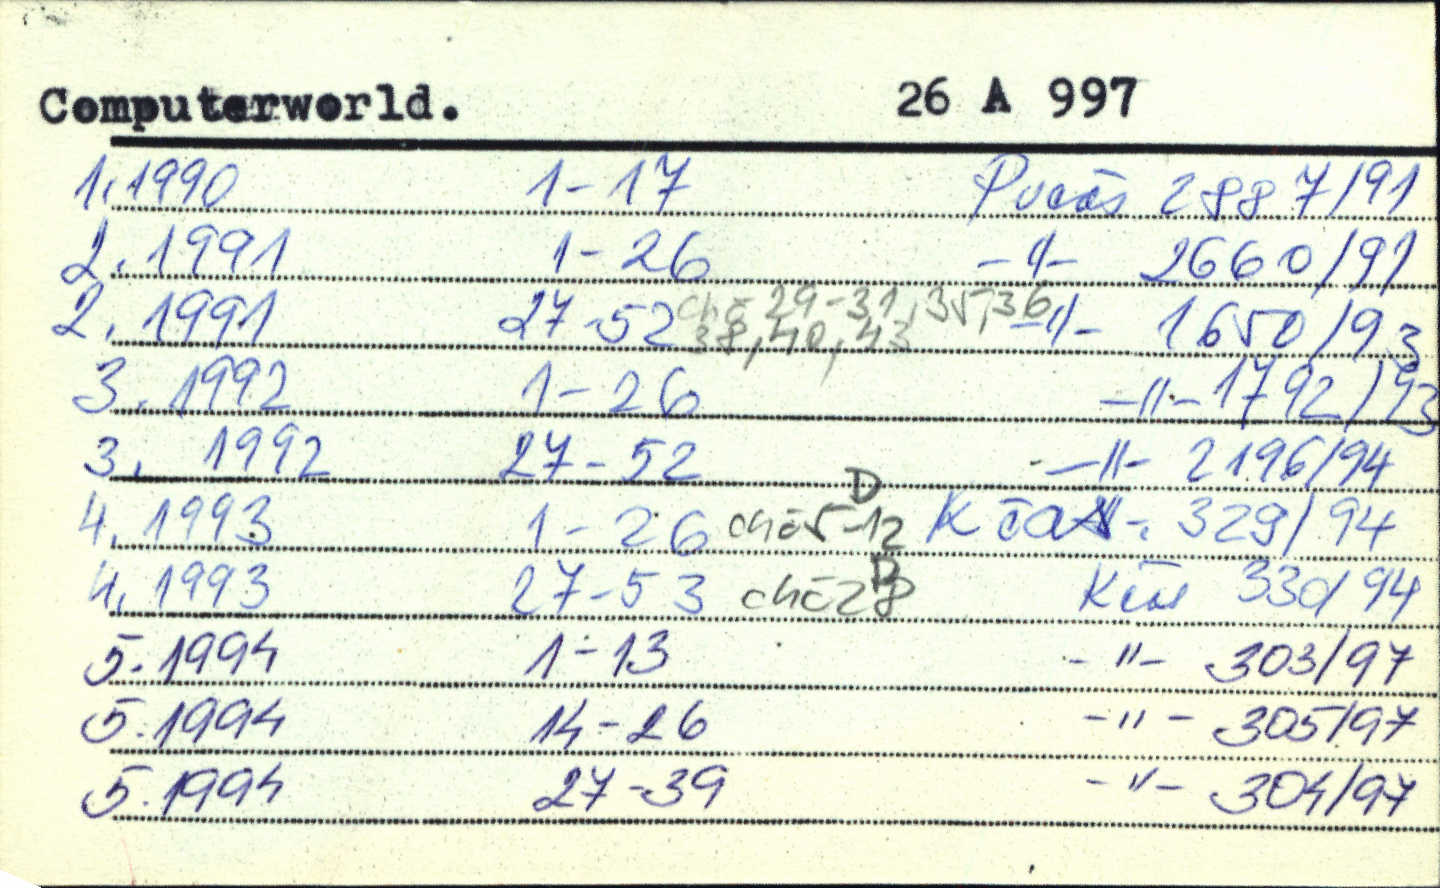 Computerworld. 26 A 997
1. 1990 1-17 Pučás 2887/91
2. 1991 1-26 -"- 2660/91
2. 1991 27-52 chč 29-31, 35, 36 -"- 1650/93
38, 40, 43
3. 1992 1-26 -"- 1792/93
3. 1992 27-52 -"- 2196/94
D
4. 1993 1-26 chč 5-12 K čas 329/94
D
4. 1993 27-53 chč 28 Kčas 330/94
5. 1994 1-13 -"- 303/97
5. 1994 14-26 -"- 305/97
5. 1994 27-39 -"- 304/97